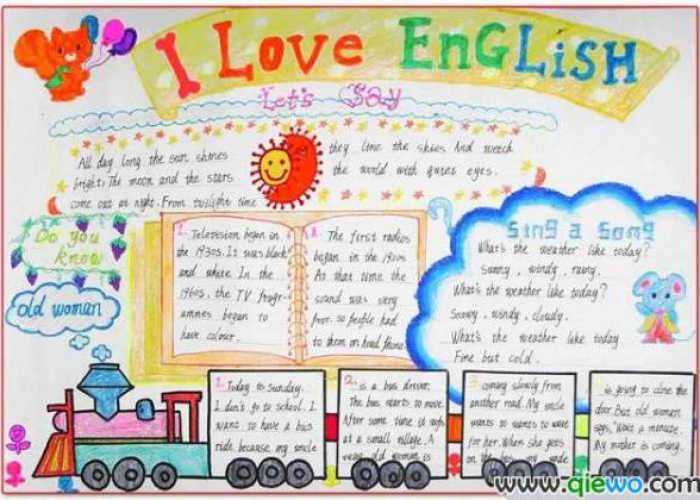 I Love EnGLiSH
Let's Say
All day long the sun shines
bright, The moon and the stars
come out at night. From twilight time
they line the skies And weech
the world with quiet eyes.
Do you
know
old woman
1. Television began in
the 1930s. It was black
and white In the
1960s, the TV progr-
ammes began to
have colour.
2. The first radios
began in the 1920s
At that time the
sound was very
poor. so people had
to them on head phone
Sing a Song
What's the weather like today?
Sunny, windy, rainy.
What's the weather like today?
Snowy, windy, cloudy.
What's the weather like today
Fine but cold.
1. Today is Sunday.
I don't go to school. I
want to have a bus
ride because my uncle
2. is a bus driver.
The bus starts to move
After some time it stops
at a small village. A
very old woman is
3. coming slowly from
another road. My uncle
wants to wants to wait
for her. When she gets
on the bus, my uncle
is going to close the
door. But old woman
says, "Wait a minute.
My mother is coming.
www.qiewo.com